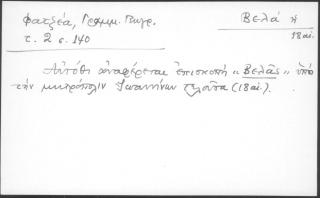 Φατζέα, Γραμμ. Γεωγρ.
τ. 2 σ. 140
Βελά ἡ
18 αἰ.
Αὐτόθι ἀναφέρεται ἐπισκοπή «Βελᾶς» ὑπό
τήν μητρόπολιν Ἰωαννίνων τελοῦσα (18 αἰ.).